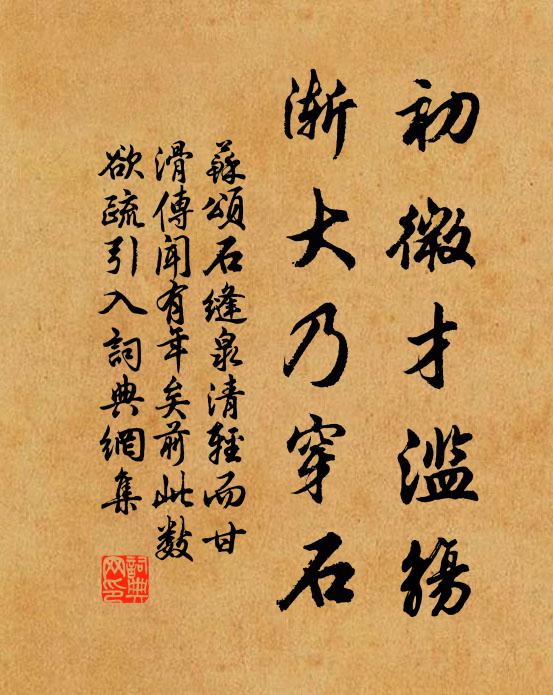 初微才滥觞
渐大乃穿石
蘇頌石縫泉清輕而甘
滑傳聞有年矣前此数
欲疏引入詞典網集
詞典
网印